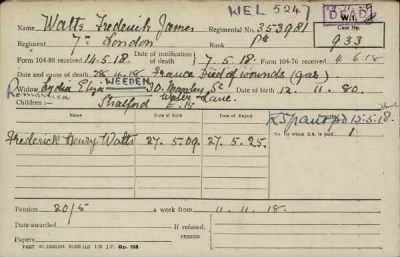 WEL 5247 DEAD
Name Watts Frederick James Regimental No. 353981 W.D.
Regiment 7th London Rank Pte Case No. 933
Form 104-88 received 14.5.18. Date of notification of death 7.5.18. Form 104-76 received 4.6.18
Date and cause of death 28.4.18. France Died of wounds (gas)
Widow Lydia Eliza WEEDEN 30. St Date of birth 12.11.80.
Remarried Stratford E.15 Lane.
Children:—
Name Date of Birth Date of Expiry
No. for whom S.A. is paid 1
Frederick Henry Watts 27.5.09. 27.5.25.
Pension 20/5 a week from 11.11.18.
Date awarded If refused, reason
Papers